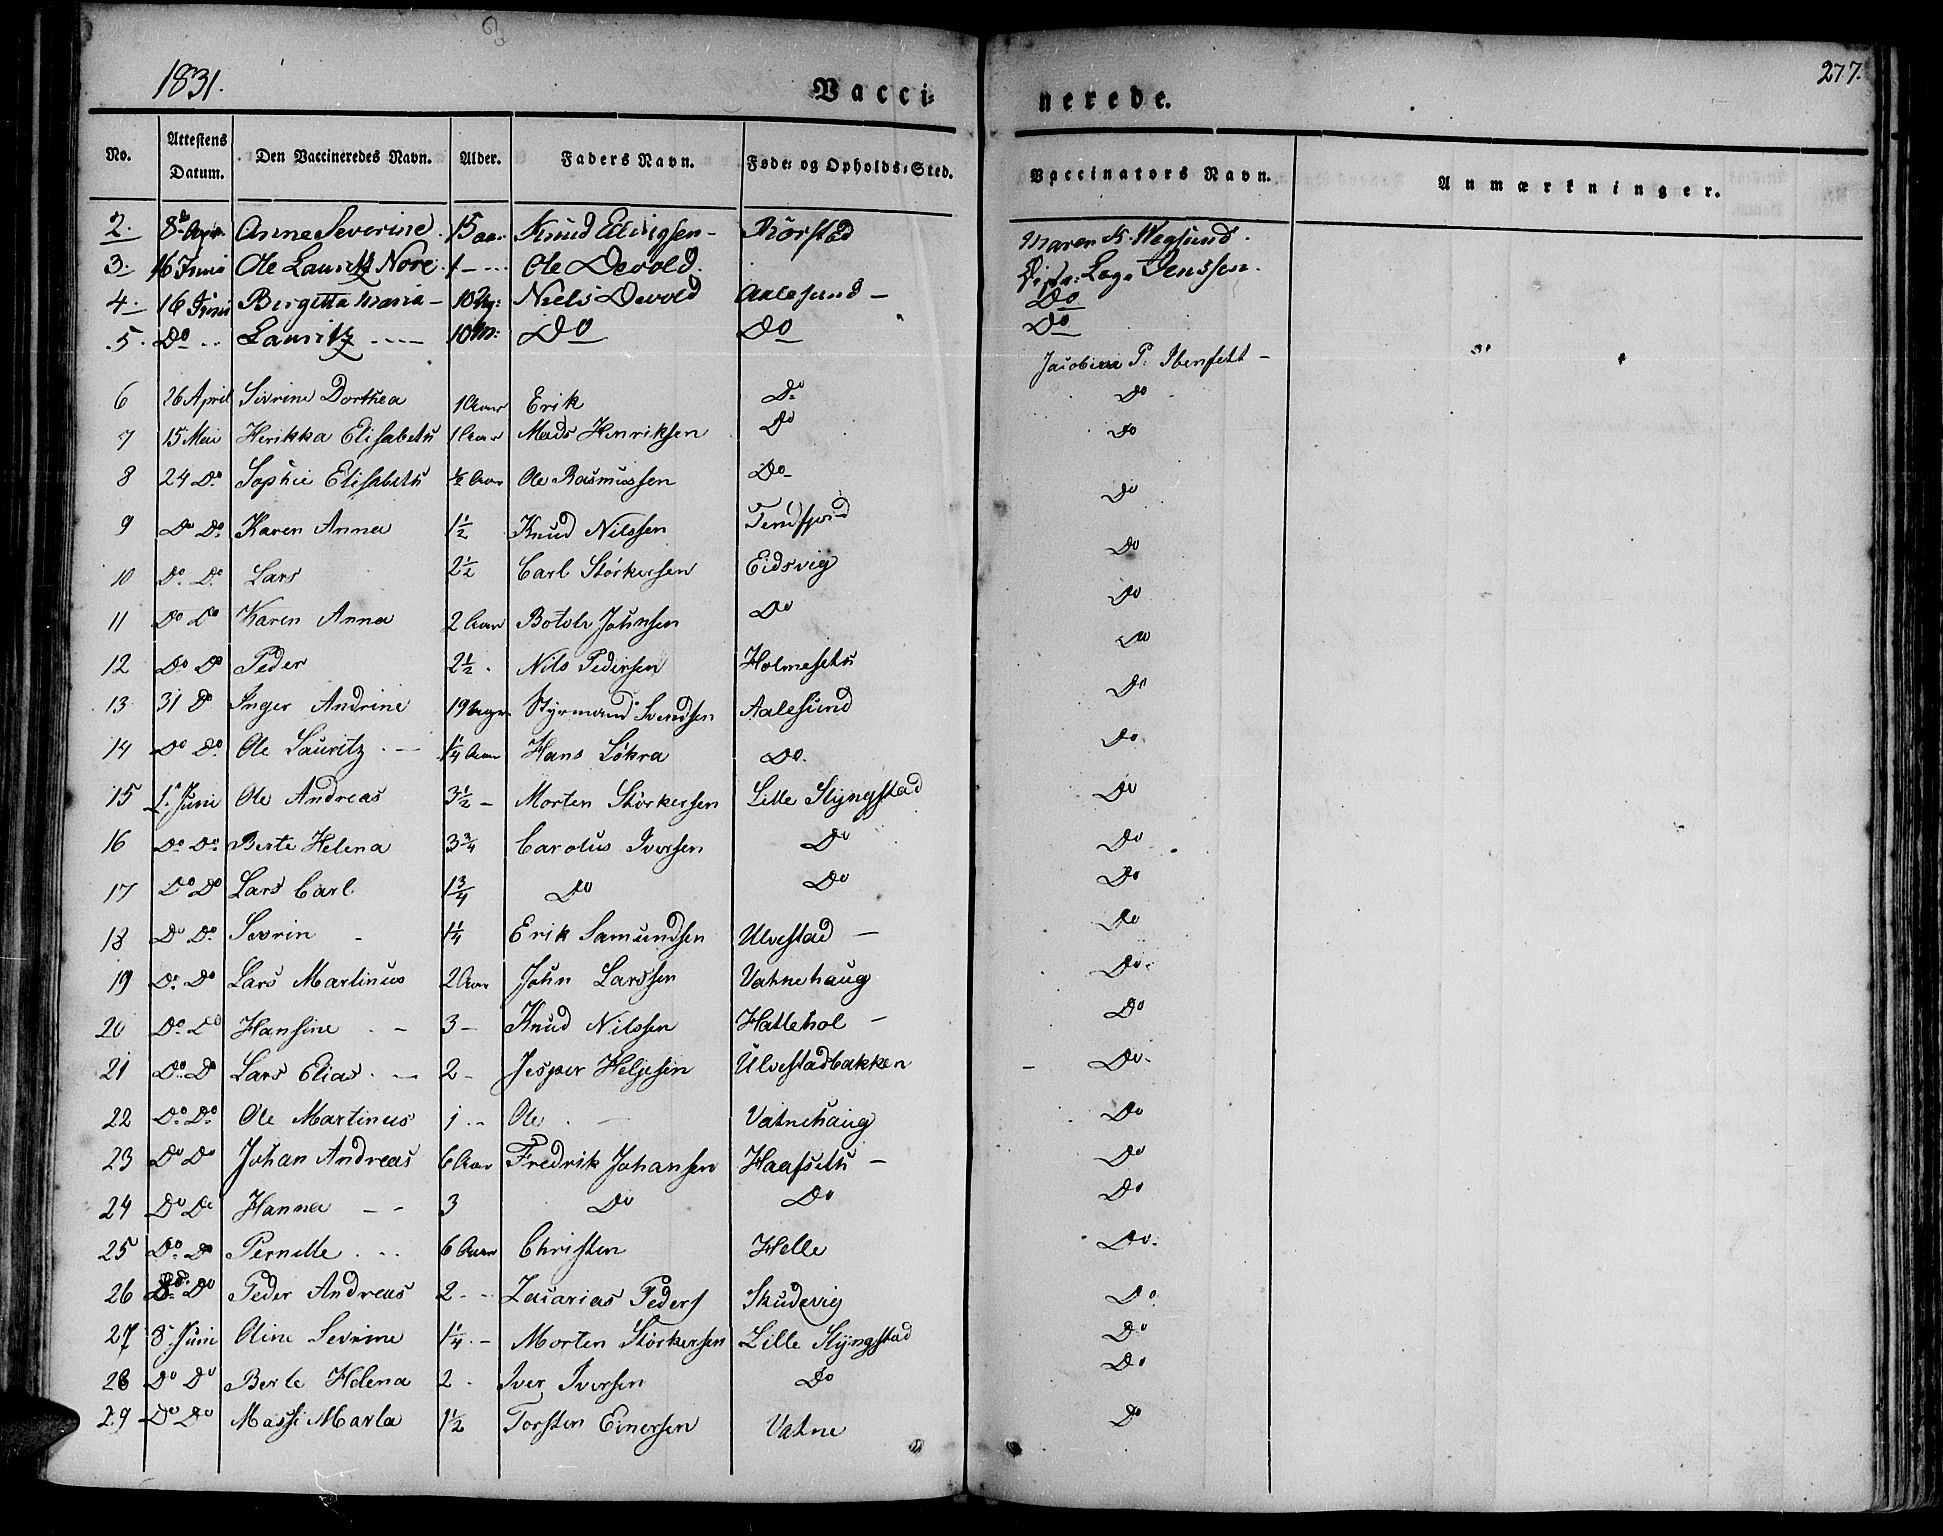 1831.
Vacci-
nerede.
277.
No. Attestens Datum. Den Vaccineredes Navn. Alder. Faders Navn. Føde- og Opholds-Sted. Vaccinators Navn. Anmærkninger.
2. 8de Anne Severine 15 aar Knud Rørstad Maren K.
3. 16 Juni Ole Lauritz Nore 1 - Ole Devold. Jenssen.
4. 16 Juni Birgitta Maria - 10 Niels Devold Aalesund - Do
5. Do Lauritz 10 M: Do Do Do
Jacobine P. Ibenfelt -
6 26 April Sivrine Dorthea 1 Aar Erik Do Do
7 15 Mai Henrikka Elisabeth 1 Aar Mads Henriksen Do Do
8 24 Do Sophie Elisabeth ½ Aar Ole Rasmussen Do Do
9 Do Do Karen Anna 1½ Knud Nilssen Tenfjord Do
10 Do Do Lars 2½ Carl Störkersen Eidsvig Do
11 Do Do Karen Anna 2 Aar Botolv Johnsen Do Do
12 Do Do Peder 2½ Nils Pedersen Holmeseth Do
13 31 Do Inger Andrine 19 Uger Styrmand Svendsen Aalesund Do
14 Do Do Ole Lauritz 1¼ Aar Hans Lökra Do Do
15 1. Juni Ole Andreas 3½ - Morten Störkersen Lille Slÿngstad Do
16 Do Do Berte Helena 3¾ Carolus Iversen Do Do
17 Do Do Lars Carl 1¾ Do Do Do
18 Do Do Sevrin 1¼ Erik Samundsen Ulvestad - Do
19 Do Do Lars Martinus 2 Aar John Larssen Vatnehaug Do
20 Do Do Hansine 3 - Knud Nilssen Hattehol - Do
21 Do Do Lars Elias 2 - Jesper Helgesen Ulvestadbakken Do
22 Do Do Ole Martinus 1 Ole Vatnehaug Do
23 Do Do Johan Andreas 6 Aar Fredrik Johansen Haafseth - Do
24 Do Do Hanna 3 Do Do Do
25 Do Do Pernille 6 Aar Christen Helle Do
26 Do Peder Andreas 2 Zacarias Peders Skudevig Do
27 8. Juni Oline Sevrine 1¼ - Morten Störkersen Lille Slÿngstad Do
28 Do Do Berte Helena 2 Iver Iversen Do Do
29 Do Do Massi Marta 1½ Torsten Einersen Vatne Do